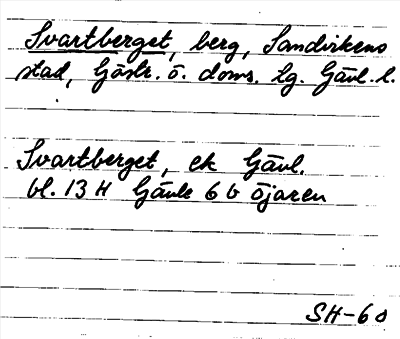 Svartberget, berg, Sandvikens
stad, Gästr. ö. doms. tg. Gävl. l.
Svartberget, ek Gävl.
bl. 13 H Gävle 6 b Öjaren
SH-60